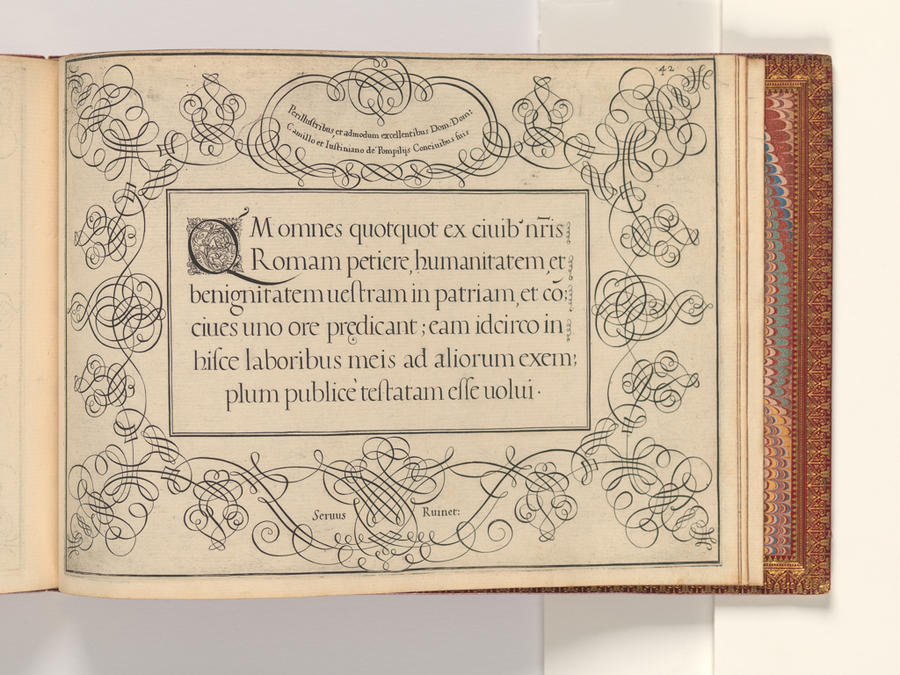 42
Perillustribus et admodum excellentibus Dom: Dom:
Camillo et Iustiniano de Pompilijs Conciuibus suis
QM omnes quotquot ex ciuib' nr̃is
Romam petiere, humanitatem, et
benignitatem uestram in patriam, et cõ:
ciues uno ore prędicant; eam idcirco in
hisce laboribus meis ad aliorum exem:
plum publicè testatam esse uolui.
Seruus Ruinet: